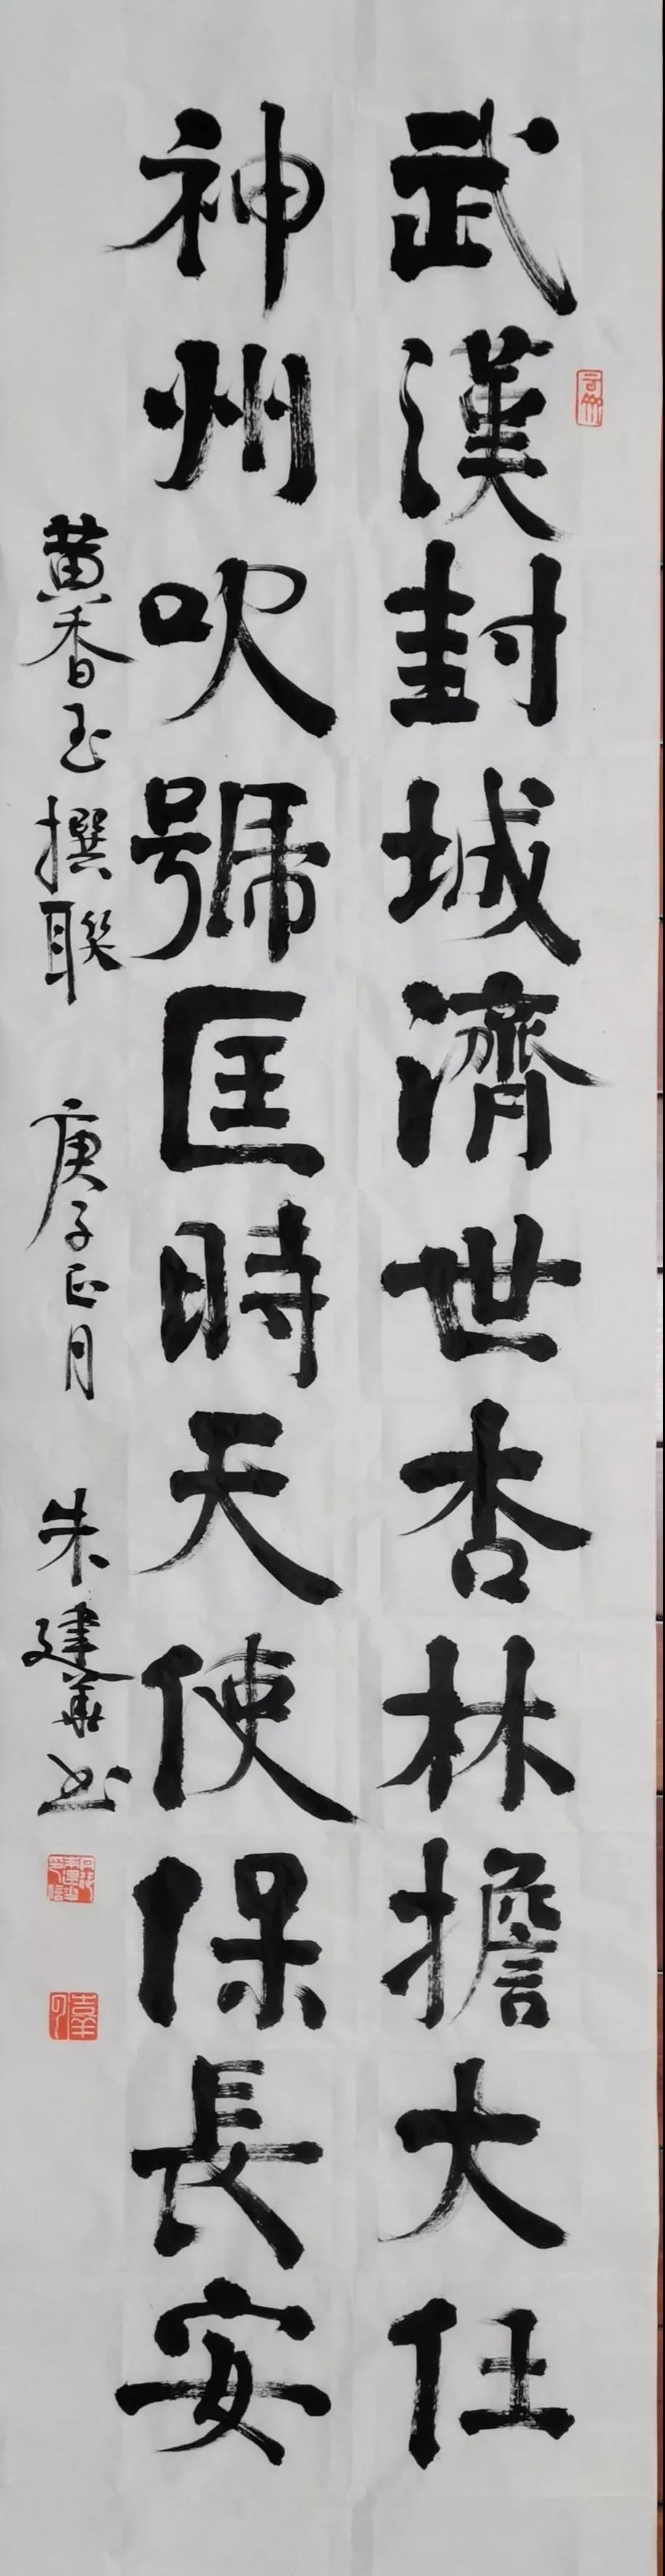 武漢封城濟世杏林擔大任
神州吹號匡時天使保長安
黄香玉撰聯 庚子正月 朱建華书